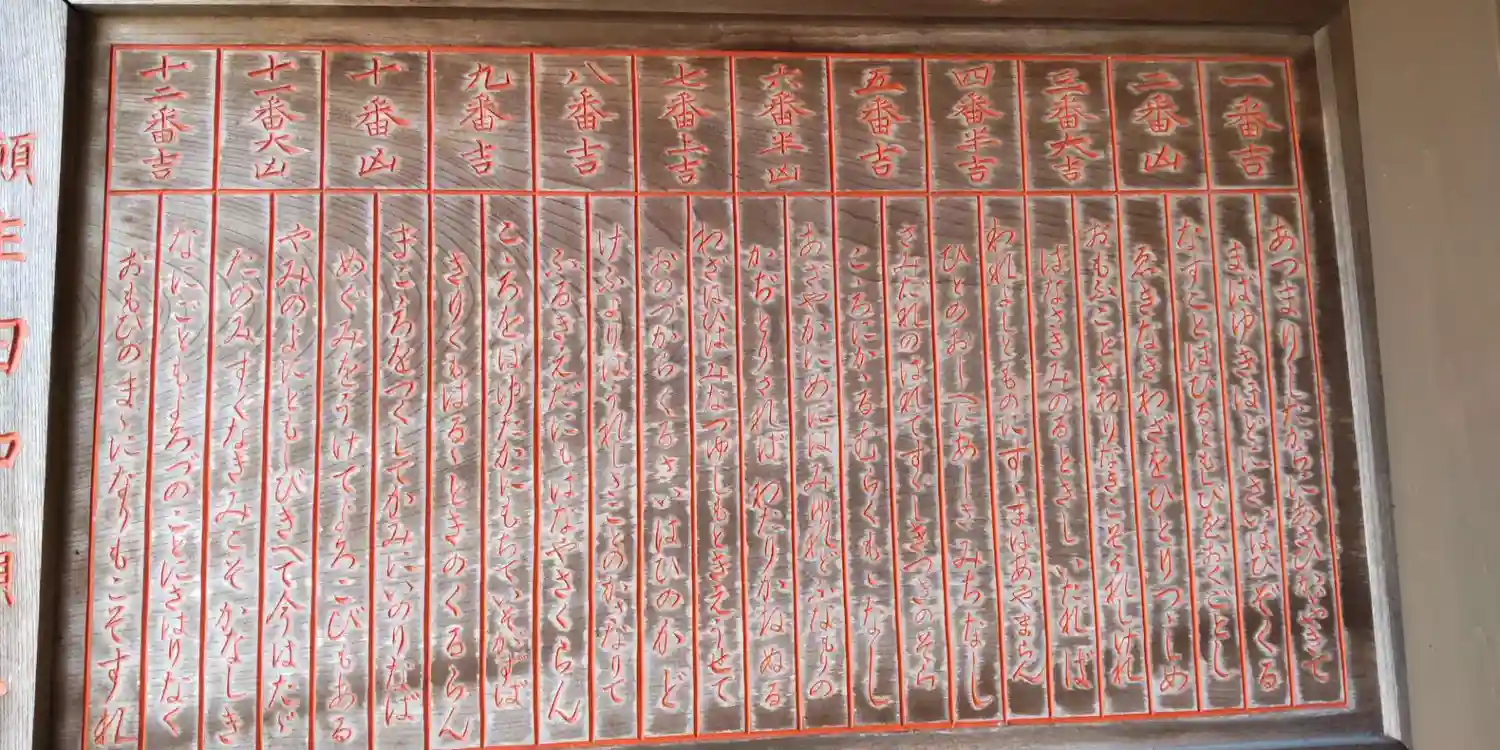 一番吉
あつまりしたからにあさひかゞやきて
まはゆきほどにさいはひぞくる
二番凶
なすことはひるともしびをおくごとし
ゑきなきわざをひとりつゝしめ
三番大吉
おもふことさわりなきこそうれしけれ
はなさきみのるときし いたれば
四番半吉
われよしとものにすゝまはあやまらん
ひとのおしへにあしきみちなし
五番吉
さみだれのはれてすゞしきつきのそら
こゝろにかゝるむらくもゝなし
六番半凶
あざやかにめにはみゆれどふなもりの
かぢとりざれば わたりかねぬる
七番上吉
わざはひはみなつゆしもときえうせて
おのづからくるさいはひのかど
八番吉
けふよりはうれしきことのかさなりて
ふるきえだにもはなやさくらん
九番吉
こゝろをばゆたかにもちていそがずば
きりくもはるゝときのくるらん
十番凶
まごころをつくしてかみにいのりなば
めぐみをうけてよろこびもある
十一番大凶
やみのよにともしびきへて今はたゞ
たのみすくなきみこそかなしき
十二番吉
なにごともよろづのことにさはりなく
おもひのまゝになりもこそすれ